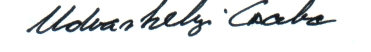 Udvarhelyi Csaba